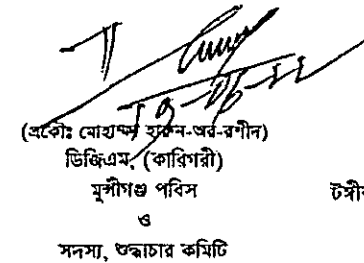 (প্রকৌঃ মোহাম্মদ হারুন-অর-রশীদ)
ডিজিএম, (কারিগরী)
মুন্সীগঞ্জ পবিস
ও
সদস্য, শুদ্ধাচার কমিটি